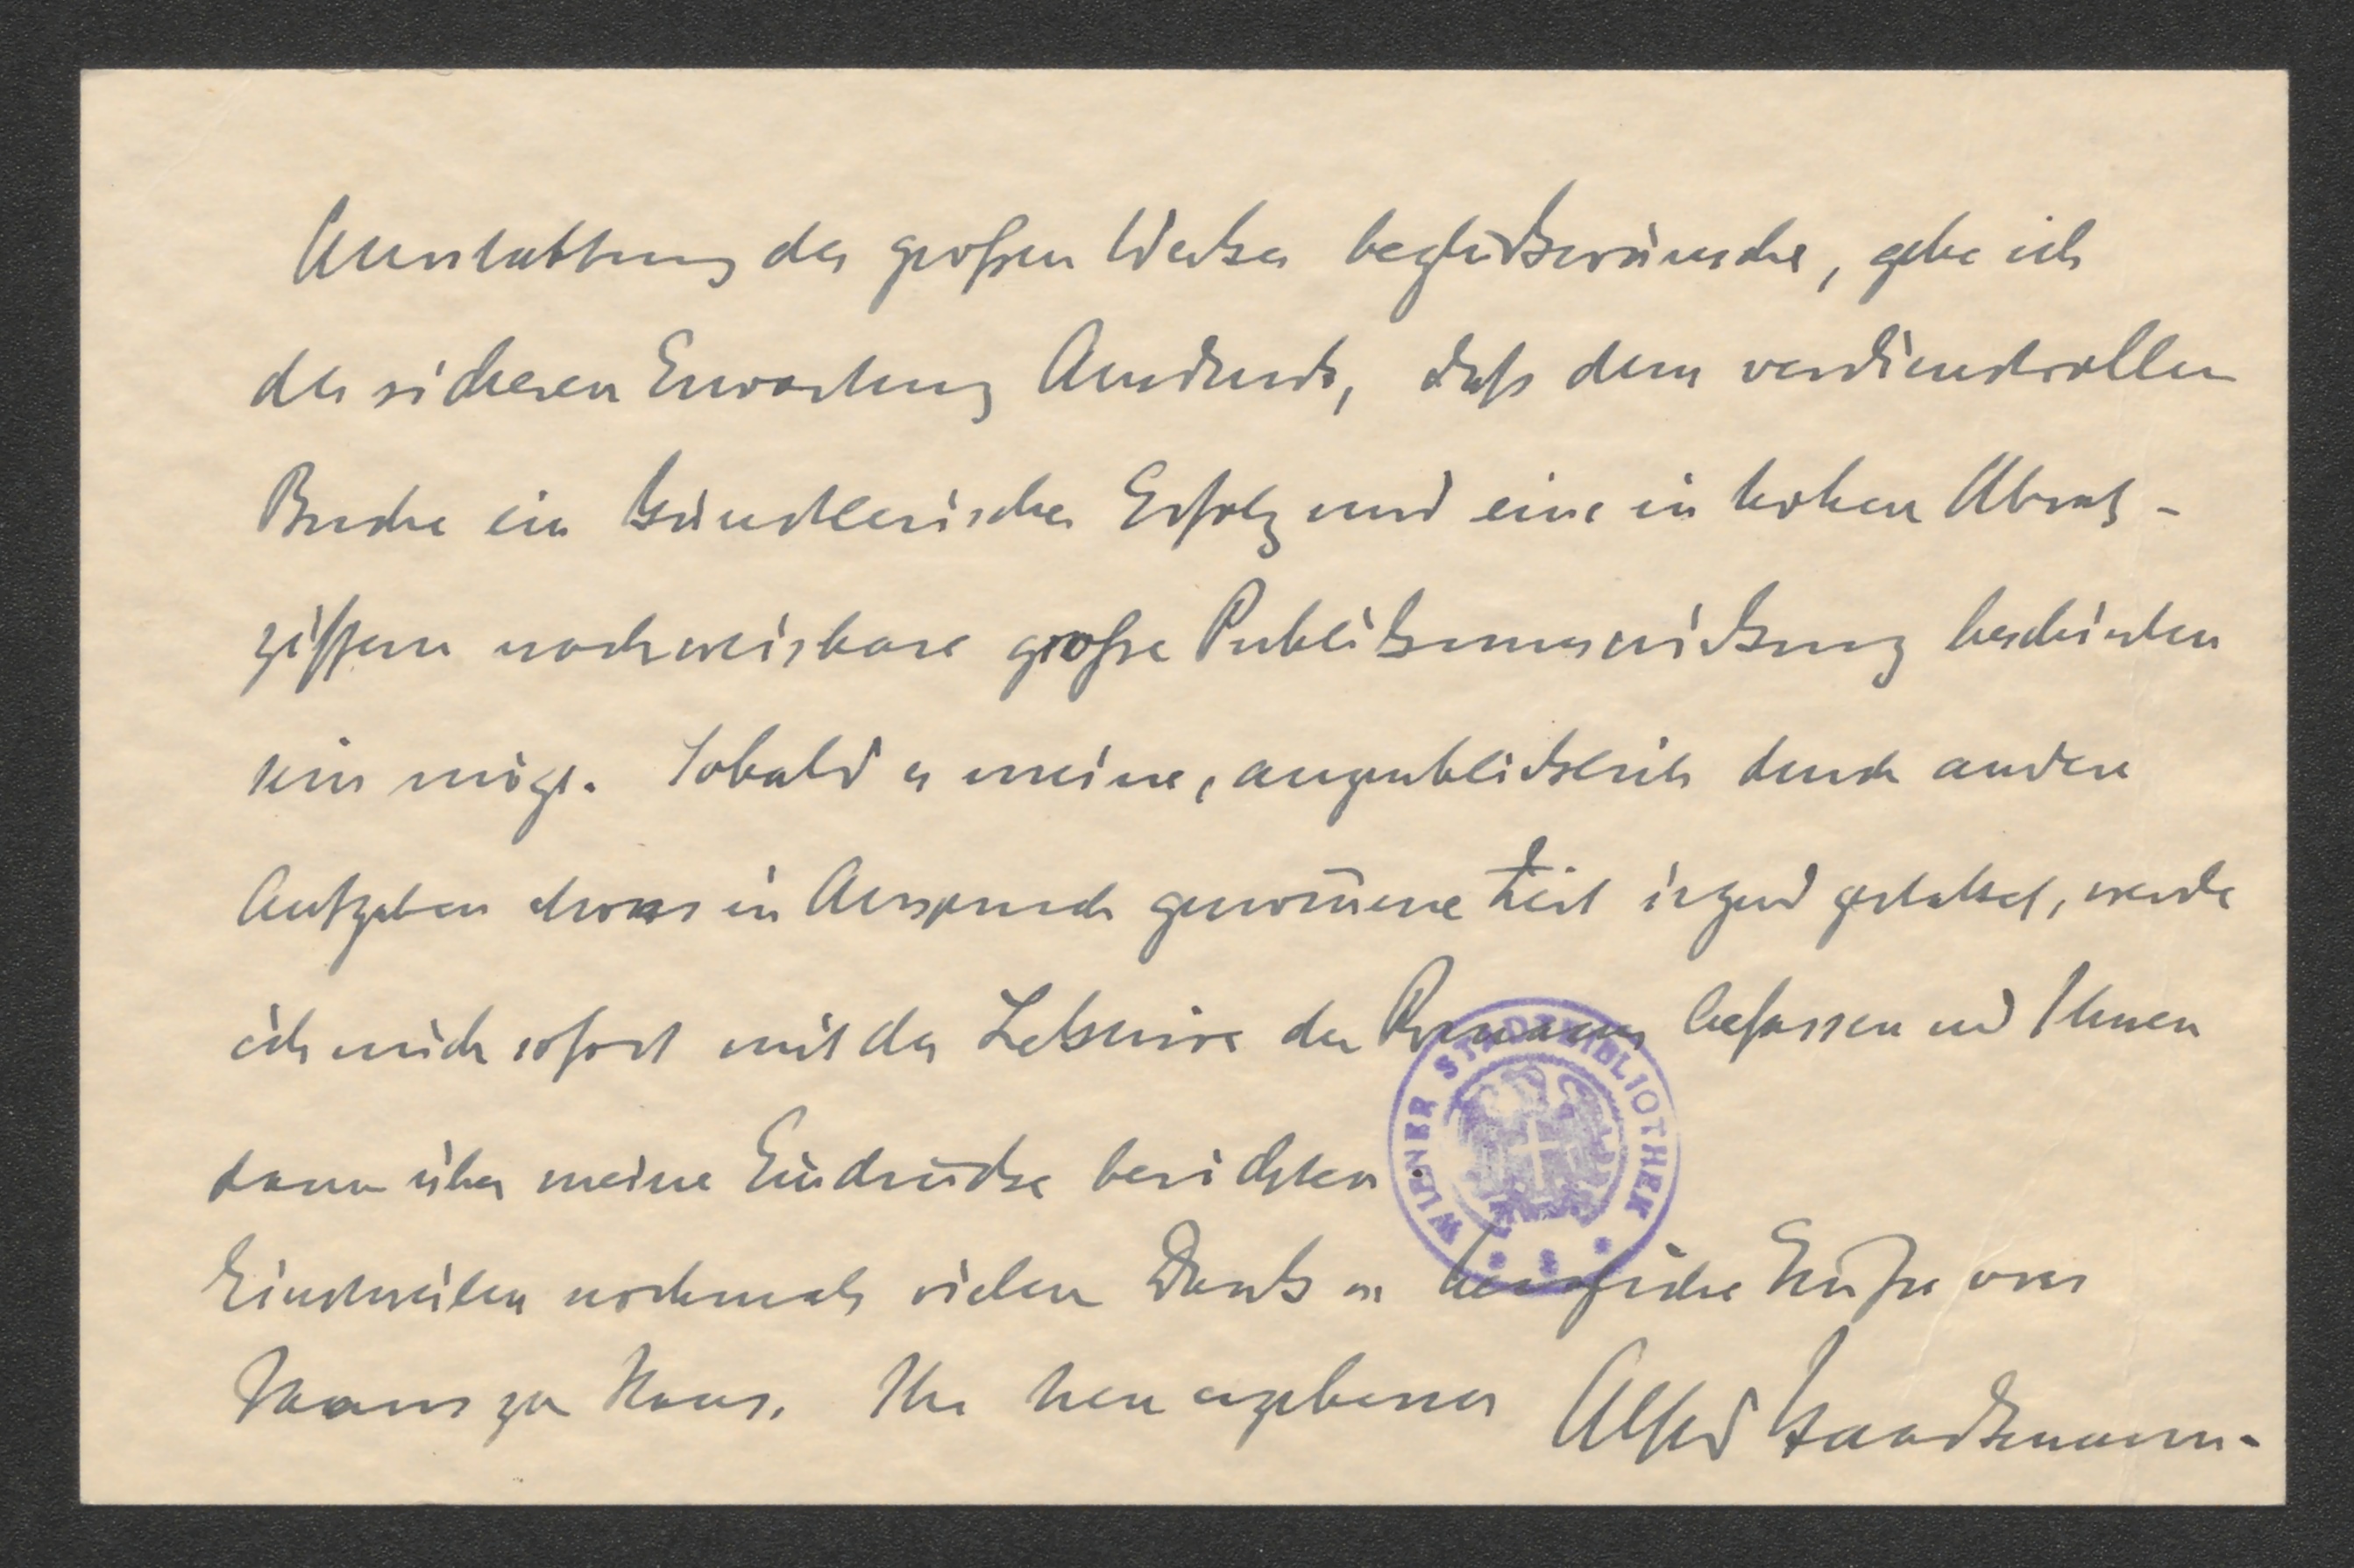 Ausstattung des großen Werkes beglückwünsche, gebe ich
der sicheren Erwartung Ausdruck, daß dem verdienstvollen
Buche ein künstlerischer Erfolg und eine in hohen Absatz-
ziffern nachweisbare große Publikumswirkung beschieden
sein möge. Sobald es meine, augenblicklich durch andere
Aufgaben etwas in Anspruch genom̄ene Zeit irgend gestattet, werde
ich mich sofort mit der Lektüre des Romans befassen und Ihnen
dann über meine Eindrücke berichten.
Einstweilen nochmals vielen Dank u. herzliche Grüße von
Haus zu Haus. Ihr treu ergebener Alfred
WIENER STADTBIBLIOTHEK